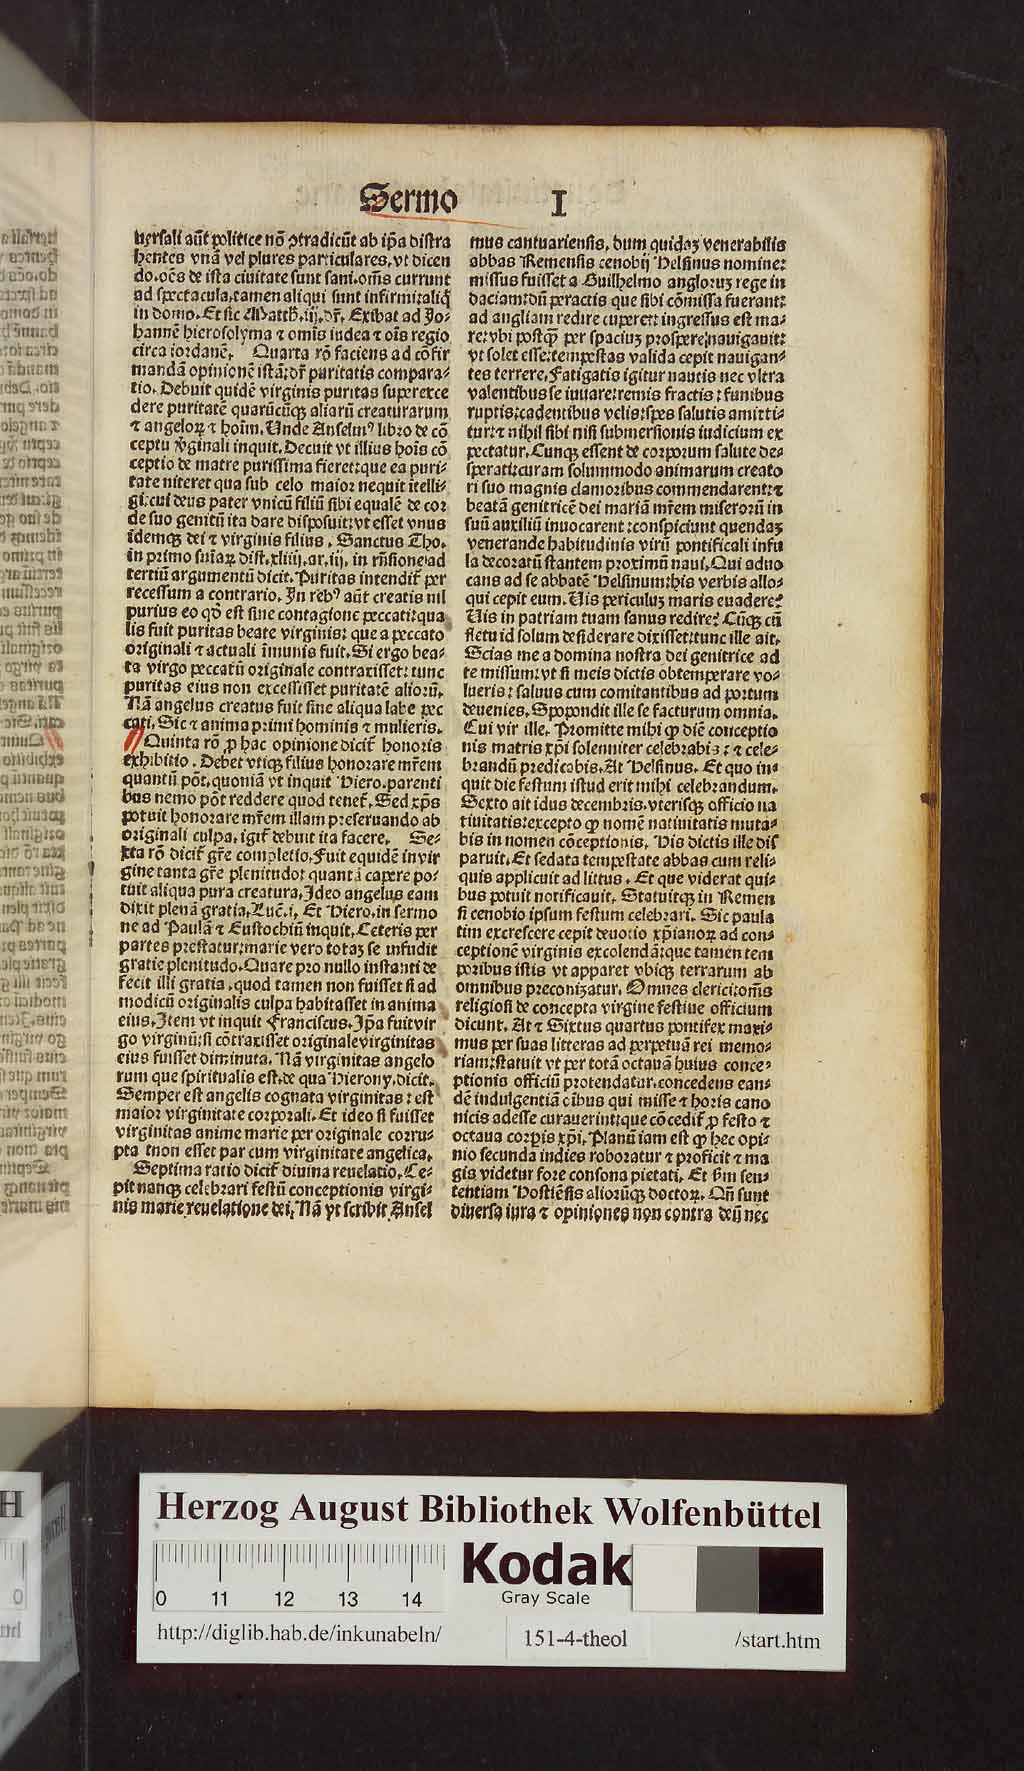 Sermo I
uersali aūt politice nō ꝯtradicūt ab ip̄a distra
hentes vnā vel plures particulares. vt dicen
do. oēs de ista ciuitate sunt sani. om̄s currunt
ad spectacula. tamen aliqui sunt infirmi: aliq̄
in domo. Et sic Matth. iij. dr̄. Exibat ad Jo-
hannē hierosolyma ⁊ omīs iudea ⁊ oīs regio
circa iordanē. Quarta rō faciens ad cōfir
mandā opinionē istā: dr̄ puritatis compara-
tio. Debuit quidē virginis puritas superexce
dere puritatē quarūcūqꝫ aliarū creaturarum
⁊ angeloꝝ ⁊ hoīm. Unde Anselmꝰ libro de cō
ceptu v̓ginali inquit. Decuit vt illius hoīs cō
ceptio de matre purissima fieret: que ea puri-
tate niteret qua sub celo maior nequit ītelli-
gi: cui deus pater vnicū filiū sibi equalē de cor
de suo genitū ita dare disposuit: vt esset vnus
īdemqꝫ dei ⁊ virginis filius. Sanctus Tho.
in primo sniaꝝ dist. xliiij. ar. iij. in rn̄sione ad
tertiū argumentū dicit. Puritas intendit̄ per
recessum a contrario. In rebꝰ aūt creatis nil
purius eo qd̓ est sine contagione peccati: qua
lis fuit puritas beate virginis: que a peccato
originali ⁊ actuali īmunis fuit. Si ergo bea-
ta virgo peccatū originale contraxisset: tunc
puritas eius non excessisset puritatē alioꝝ.
Nā angelus creatus fuit sine aliqua labe pec
cati. Sic ⁊ anima primi hominis ⁊ mulieris.
Quinta rō ꝓ hac opinione dicit̄ honoris
exhibitio. Debet vtiqꝫ filius honorare mr̄em
quantū pōt. quoniā vt inquit Hiero. parenti
bus nemo pōt reddere quod tenet̄. Sed xp̄s
potuit honorare mr̄em illam preseruando ab
originali culpa. igit̄ debuit ita facere. Se-
xta rō dicit̄ gr̄e completio. Fuit equidē in vir
gine tanta gr̄e plenitudo: quantā capere po-
tuit aliqua pura creatura. Ideo angelus eam
dixit plenā gratia. Luc̄. i. Et Hiero. in sermo
ne ad Paulā ⁊ Eustochiū inquit. Ceteris per
partes prestatur: marie vero totaꝫ se infudit
gratie plenitudo. Quare pro nullo instanti de
fecit illi gratia. quod tamen non fuisset si ad
modicū originalis culpa habitasset in anima
eius. Item vt inquit Franciscus. Ip̄a fuit vir
go virginū: si cōtraxisset originale virginitas
eius fuisset diminuta. Nā virginitas angelo
rum que spiritualis est. de qua Hierony. dicit.
Semper est angelis cognata virginitas: est
maior virginitate corporali. Et ideo si fuisset
virginitas anime marie per originale corru-
pta tn̄on esset par cum virginitate angelica.
Septima ratio dicit̄ diuina reuelatio. Ce-
pit nanqꝫ celebrari festū conceptionis virgi-
nis marie reuelatione dei. Nā vt scribit Ansel
mus cantuariensis. dum quidaꝫ venerabilis
abbas Remensis cenobij Helsinus nomine:
missus fuisset a Guilhelmo angloruꝫ rege in
daciam: dū peractis que sibi cōmissa fuerant:
ad angliam redire cuperet: ingressus est ma-
re: vbi postqꝫ per spaciuꝫ prospere nauigauit:
vt solet esse: tempestas valida cepit nauigan-
tes terrere. Fatigatis igitur nautis nec vltra
valentibus se iuuare: remis fractis: funibus
ruptis: cadentibus velis: spes salutis amitti-
tur: ⁊ nihil sibi nisi submersionis iudicium ex
pectatur. Cunqꝫ essent de corporum salute de-
sperati: curam solummodo animarum creato
ri suo magnis clamoribus commendarent: ⁊
beatā genitricē dei mariā mr̄em miserorū in
suū auxiliū inuocarent: conspiciunt quendaꝫ
venerande habitudinis virū pontificali infu
la decoratū stantem proximū naui. Qui aduo
cans ad se abbatē Helsinum: his verbis allo-
qui cepit eum. Uis periculuꝫ maris euadere?
Uis in patriam tuam sanus redire? Cūqꝫ cū
fletu id solum desiderare dixisset: tunc ille ait.
Scias me a domina nostra dei genitrice ad
te missum: vt si meis dictis obtemperare vo-
lueris: saluus cum comitantibus ad portum
deuenies. Spopondit ille se facturum omnia.
Cui vir ille. Promitte mihi qꝫ diē conceptio
nis matris xp̄i solenniter celebrabis: ⁊ cele-
brandū predicabis. At Helsinus. Et quo in-
quit die festum istud erit mihi celebrandum.
Sexto ait idus decembris. vterisqꝫ officio na
tiuitatis: excepto qꝫ nomē natiuitatis muta-
bis in nomen cōceptionis. His dictis ille dis
paruit. Et sedata tempestate abbas cum reli-
quis applicuit ad littus. Et que viderat qui-
bus potuit notificauit. Statuitqꝫ in Remen
si cenobio ipsum festum celebrari. Sic paula
tim excrescere cepit deuotio xp̄ianoꝝ ad con-
ceptionē virginis excolendā: que tamen tem
poribus istis vt apparet vbiqꝫ terrarum ab
omnibus preconizatur. Omnes clerici: om̄s
religiosi de concepta virgine festiue officium
dicunt. At ⁊ Sixtus quartus pontifex maxi-
mus per suas litteras ad perpetuā rei memo-
riam: statuit vt per totā octauā huius conce-
ptionis officiū protendatur. concedens ean-
dē indulgentiā oibus qui misse ⁊ horis cano
nicis adesse curauerint: que cōcedit̄ ꝓ festo ⁊
octaua corpis xp̄i. Planū iam est qꝫ hec opi-
nio secunda indies roboratur ⁊ proficit ⁊ ma
gis videtur fore consona pietati. Et s̄m sen-
tentiam Hostiēsis aliorūqꝫ doctoꝝ. Qn̄ sunt
diuersa iura ⁊ opiniones non contra deū nec
Herzog August Bibliothek Wolfenbüttel
0 11 12 13 14
Kodak
Gray Scale
http://diglib.hab.de/inkunabeln/ 151-4-theol /start.htm